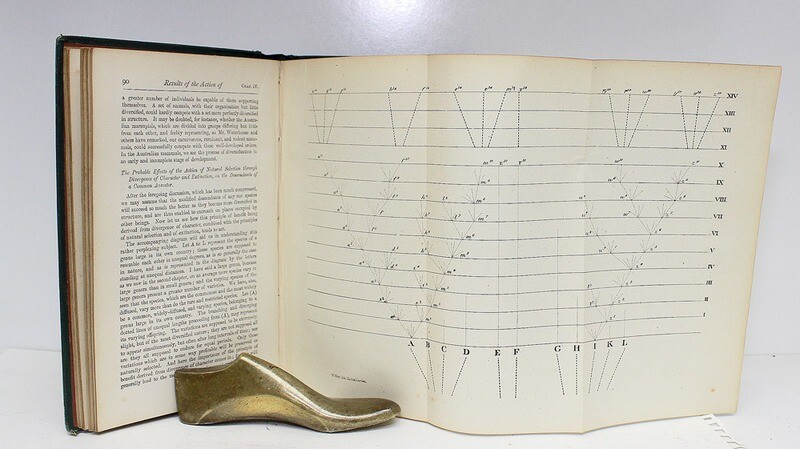 90 Results of the Action of CHAP. IV.
a greater number of individuals be capable of thus supporting
themselves. A set of animals, with their organisation but little
diversified, could hardly compete with a set more perfectly diversified
in structure. It may be doubted, for instance, whether the Austra-
lian marsupials, which are divided into groups differing but little
from each other, and feebly representing, as Mr. Waterhouse and
others have remarked, our carnivorous, ruminant, and rodent mam-
mals, could successfully compete with these well-developed orders.
In the Australian mammals, we see the process of diversification in
an early and incomplete stage of development.
The Probable Effects of the Action of Natural Selection through
Divergence of Character and Extinction, on the Descendants of
a Common Ancestor.
After the foregoing discussion, which has been much compressed,
we may assume that the modified descendants of any one species
will succeed so much the better as they become more diversified in
structure, and are thus enabled to encroach on places occupied by
other beings. Now let us see how this principle of benefit being
derived from divergence of character, combined with the principles
of natural selection and of extinction, tends to act.
The accompanying diagram will aid us in understanding this
rather perplexing subject. Let A to L represent the species of a
genus large in its own country; these species are supposed to
resemble each other in unequal degrees, as is so generally the case
in nature, and as is represented in the diagram by the letters
standing at unequal distances. I have said a large genus, because
as we saw in the second chapter, on an average more species vary in
large genera than in small genera; and the varying species of the
large genera present a greater number of varieties. We have, also,
seen that the species, which are the commonest and the most widely
diffused, vary more than do the rare and restricted species. Let (A)
be a common, widely-diffused, and varying species, belonging to a
genus large in its own country. The branching and diverging
dotted lines of unequal lengths proceeding from (A), may represent
its varying offspring. The variations are supposed to be extremely
slight, but of the most diversified nature; they are not supposed all
to appear simultaneously, but often after long intervals of time; nor
are they all supposed to endure for equal periods. Only those
variations which are in some way profitable will be preserved or
naturally selected. And here the importance of the principle of
benefit derived from
generally lead to the
XIV
XIII
XII
XI
X
IX
VIII
VII
VI
V
IV
III
II
I
A B C D E F G H I K L